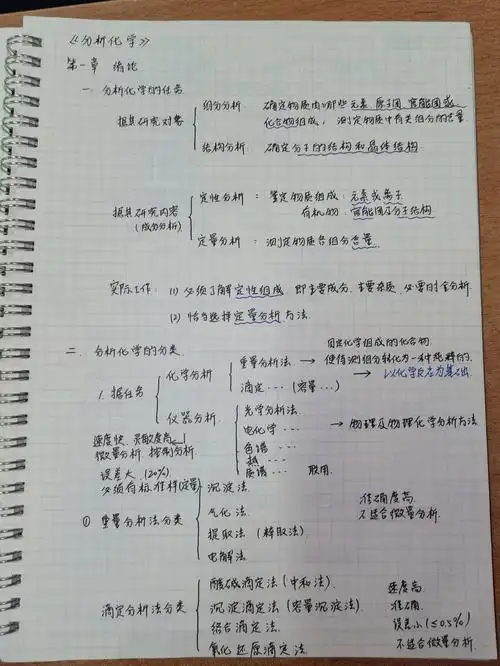 《分析化学》
第一章 绪论
一. 分析化学的任务
据其研究对象
组分分析. 确定物质由哪些元素.原子团.官能团或
化合物组成, 测定物质中有关组分的含量
结构分析. 确定分子的结构和晶体结构.
据其研究内容
(成分分析)
定性分析: 鉴定物质组成: 元素或离子
有机物: 官能团及分子结构
定量分析: 测定物质各组分含量.
实际工作: (1) 必须了解定性组成. 即主要成分. 主要杂质. 必要时全分析.
(2) 恰当选择定量分析方法.
二. 分析化学的分类.
1. 据任务
化学分析
重量分析法. → 使待测组分转化为一种纯粹的.
固定化学组成的化合物.
滴定…(容量…) → 以化学反应为基础
仪器分析.
光学分析法.
电化学…
色谱…
热…
质谱… 联用.
→ 物理及物理化学分析方法
速度快. 灵敏度高
微量分析.
误差大. (20%)
必须有标准样(定量)
① 重量分析法分类
沉淀法.
气化法.
提取法 (萃取法)
电解法
准确度高.
不适合微量分析.
滴定分析法分类
酸碱滴定法 (中和法).
沉淀滴定法 (容量沉淀法).
络合滴定法.
氧化还原滴定法.
速度高.
准确.
误差小(≤0.5%)
不适合微量分析.